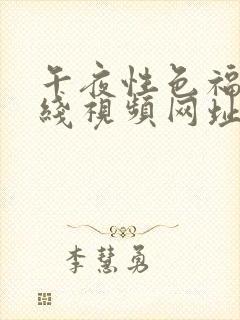 午夜性色福
綫視頻网址
李慧勇